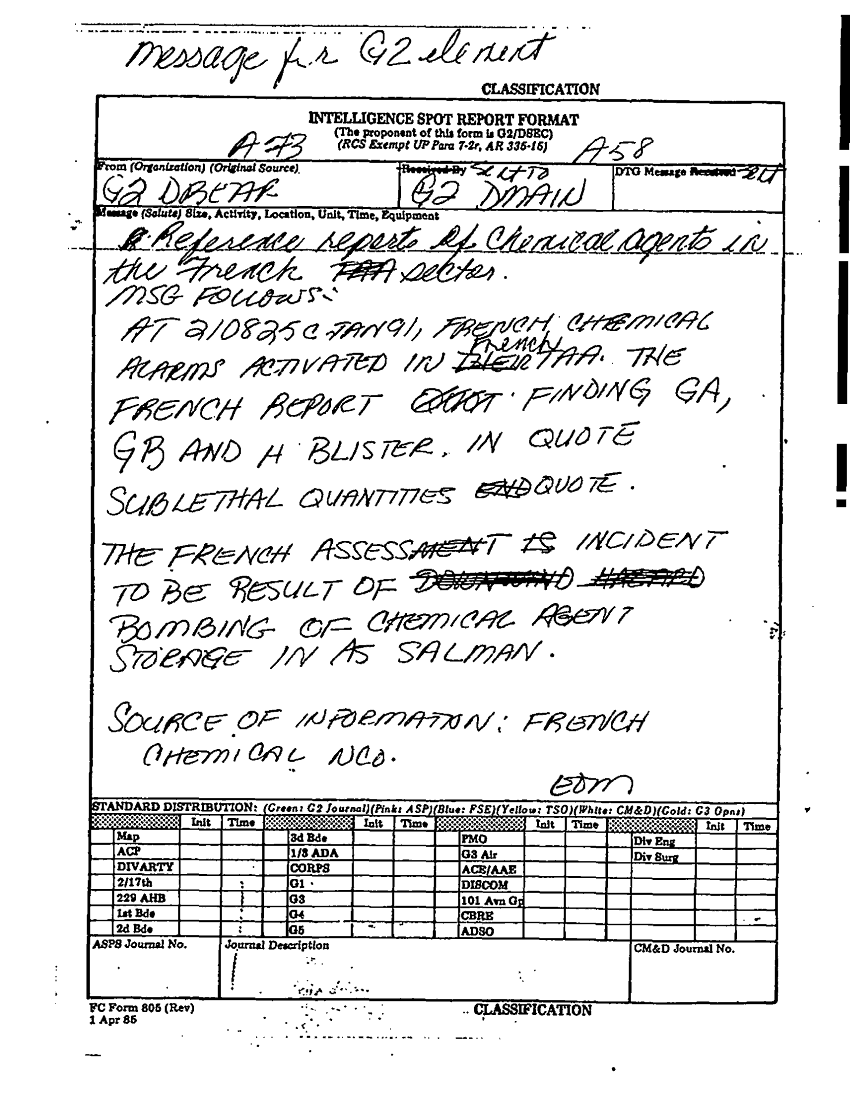 message for G2 element
CLASSIFICATION
INTELLIGENCE SPOT REPORT FORMAT
(The proponent of this form is G2/DSEC)
(RCS Exempt UP Para 7-2r, AR 335-15)
A 73
A58
From (Organization) (Original Source)
Received By
DTG Message Received
G2 DREAR
G2 DMAIN
Message (Salute) Size, Activity, Location, Unit, Time, Equipment
Reference reports of chemical agents in
the French TAA sector.
MSG FOLLOWS:
AT 210825C JAN91, FRENCH CHEMICAL
French
ALARMS ACTIVATED IN THEIR TAA. THE
FRENCH REPORT FINDING GA,
GB AND H BLISTER. IN QUOTE
SUBLETHAL QUANTITIES END QUOTE.
THE FRENCH ASSESSMENT IS INCIDENT
TO BE RESULT OF DOWNWIND HAZARD
BOMBING OF CHEMICAL AGENT
STORAGE IN AS SALMAN.
SOURCE OF INFORMATION: FRENCH
CHEMICAL NCO.
EOM
STANDARD DISTRIBUTION: (Green: G2 Journal)(Pink: ASP)(Blue: FSE)(Yellow: TSO)(White: CM&D)(Gold: G3 Opns)
Init Time Init Time Init Time Init Time
Map 3d Bde PMO Div Eng
ACP 1/3 ADA G3 Air Div Surg
DIVARTY CORPS ACE/AAE
2/17th G1 DISCOM
229 AHB G3 101 Avn Gp
1st Bde G4 CBRE
2d Bde G5 ADSO
ASPS Journal No. Journal Description CM&D Journal No.
FC Form 805 (Rev)
1 Apr 85
CLASSIFICATION